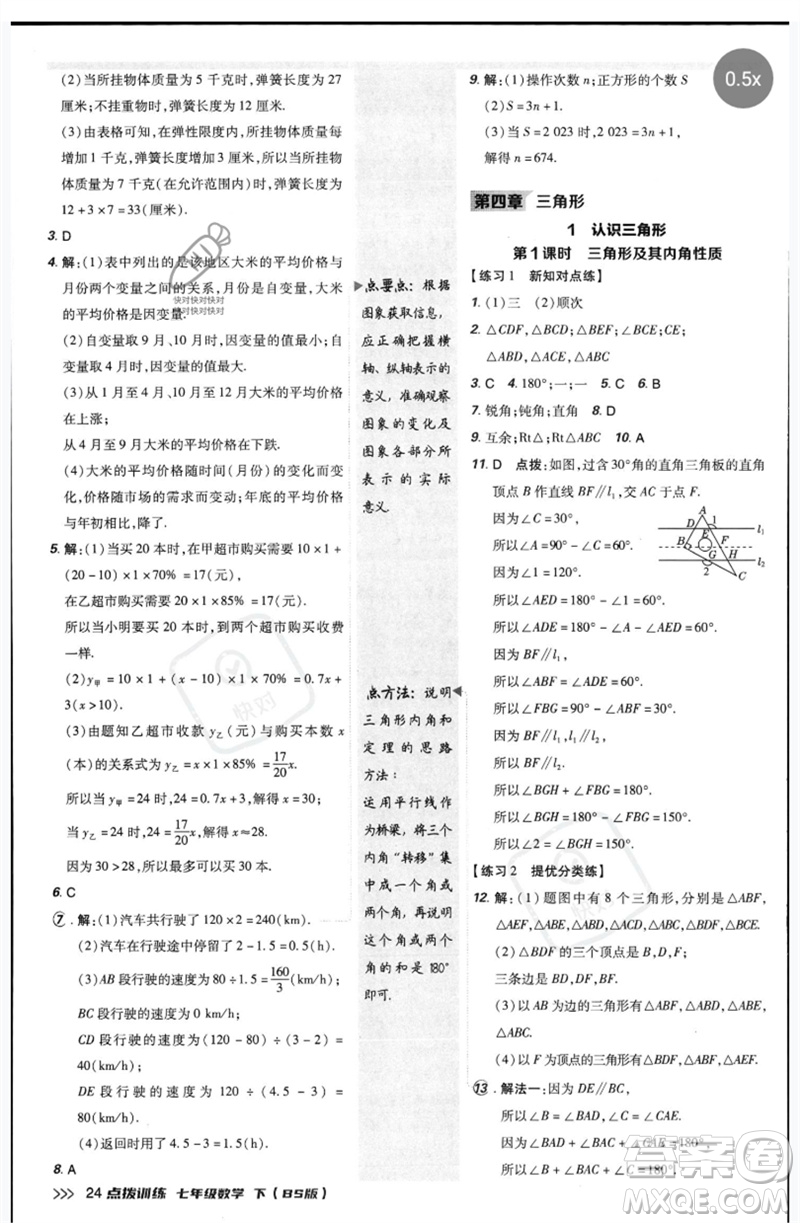 (2)当所挂物体质量为 5 千克时,弹簧长度为 27
厘米;不挂重物时,弹簧长度为 12 厘米.
(3)由表格可知,在弹性限度内,所挂物体质量每
增加 1 千克,弹簧长度增加 3 厘米,故当所挂物
体质量为 7 千克(在允许范围内)时,弹簧长度为
12+3×7=33(厘米).
3. D
4. 解:(1)表中列出的是该地区大米的平均价格与
月份两个变量之间的关系,月份是自变量,大米
的平均价格是因变量.
(2)自变量是 4 月时,因变量的值最小;自变量是
12 月时,因变量的值最大.
(3)从 1 月至 4 月、10 月至 12 月的平均价格
在上涨;
从 4 月至 9 月大米的平均价格在下跌.
(4)大米的平均价格随时间(月份)的变化而变
化,价格随市场的需求而变动;年底的平均价格
与年初相比,降了.
5. 解:(1)当买 20 本时,在甲超市购买需要 10×1+
(20-10)×1×70%=17(元),
在乙超市购买需要 20×1×85% =17(元).
所以当小明要买 20 本时,到两个超市购买收费
一样.
(2)y甲=10×1+(x-10)×1×70%=0.7x+
3(x>10).
(3)由题知乙超市收款 y乙(元)与购买本数 x
(本)的关系式为 y乙=x×1×85%=17/20x.
所以当 y甲=24 时,24=0.7x+3,解得 x=30;
当 y乙=24 时,24=17/20x,解得 x≈28.
因为 30>28,所以最多可以买 30 本.
6. C
7. 解:(1)汽车共行驶了 120×2=240(km).
(2)汽车在行驶途中停留了 2-1.5=0.5(h).
(3)AB 段行驶的速度为 80÷1.5=160/3(km/h);
BC 段行驶的速度为 0;
CD 段行驶的速度为(120-80)÷(3-2)=
40(km/h);
DE 段行驶的速度为 120÷(4.5-3)=
80(km/h).
(4)返回时用了 4.5-3=1.5(h).
8. A
>>> 24 点拨训练 七年级数学 下(BS版)
点要点:根据
图象获取信息,
应正确把握横
轴、纵轴表示的
意义,准确观察
图象的变化及
图象各部分所
表示的实际
意义.
点方法:说明
三角形内角和
定理的思路
方法:
运用平行线作
为桥梁,将三个
内角“转移”集
中成一个角或
两个角,再说明
这个角或两个
角的和是180°
即可.
9. 解:(1)操作次数 n;正方形的个数 S
(2)S=3n+1.
(3)当 S=2 023 时,2 023=3n+1,
解得 n=674.
0.5x
第四章 三角形
1 认识三角形
第1课时 三角形及其内角性质
【练习1 新知对点练】
1. (1)三 (2)顺次
2. △CDF,△BCD;△BEF;∠BCE;CE;
△ABD,△ACE,△ABC
3. C 4. 180°;一;一 5. C 6. B
7. 锐角;钝角;直角 8. D
9. 互余;Rt△;Rt△ABC 10. A
11. D 点拨:如图,过含 30°角的直角三角板的直角
顶点 B 作直线 BF∥l1,交 AC 于点 F.
因为∠C=30°,
所以∠A=90°-∠C=60°.
因为∠1=120°,
所以∠AED=180°-∠1=60°.
所以∠ADE=180°-∠A-∠AED=60°.
因为 BF∥l1,
所以∠ABF=∠ADE=60°.
所以∠FBG=90°-∠ABF=30°.
因为 BF∥l1,l1∥l2,
所以 BF∥l2.
所以∠BGH+∠FBG=180°.
所以∠BGH=180°-∠FBG=150°.
所以∠2=∠BGH=150°.
A
D
1
E
l1
B
F
G
H
l2
2
C
【练习2 提优分类练】
12. 解:(1)题图中有 8 个三角形,分别是△ABF,
△AEF,△ABE,△ADB,△BDF,△BDE,
△ABC,△BEC.
(2)△BEC 的三个顶点是 B,E,C,
三条边是 BE,EC,BC.
(3)以 AB 为边的三角形有△ABF,△ABD,△ABE,
△ABC.
(4)以 F 为顶点的三角形有△BDF,△ABF,△AEF.
13. 解法一:因为 DE∥BC,
所以∠B=∠BAD,∠C=∠CAE.
因为∠BAD+∠BAC+∠CAE=180°,
所以∠B+∠BAC+∠C=180°.
快对快对快对
快对快对快对
快对
答案圈